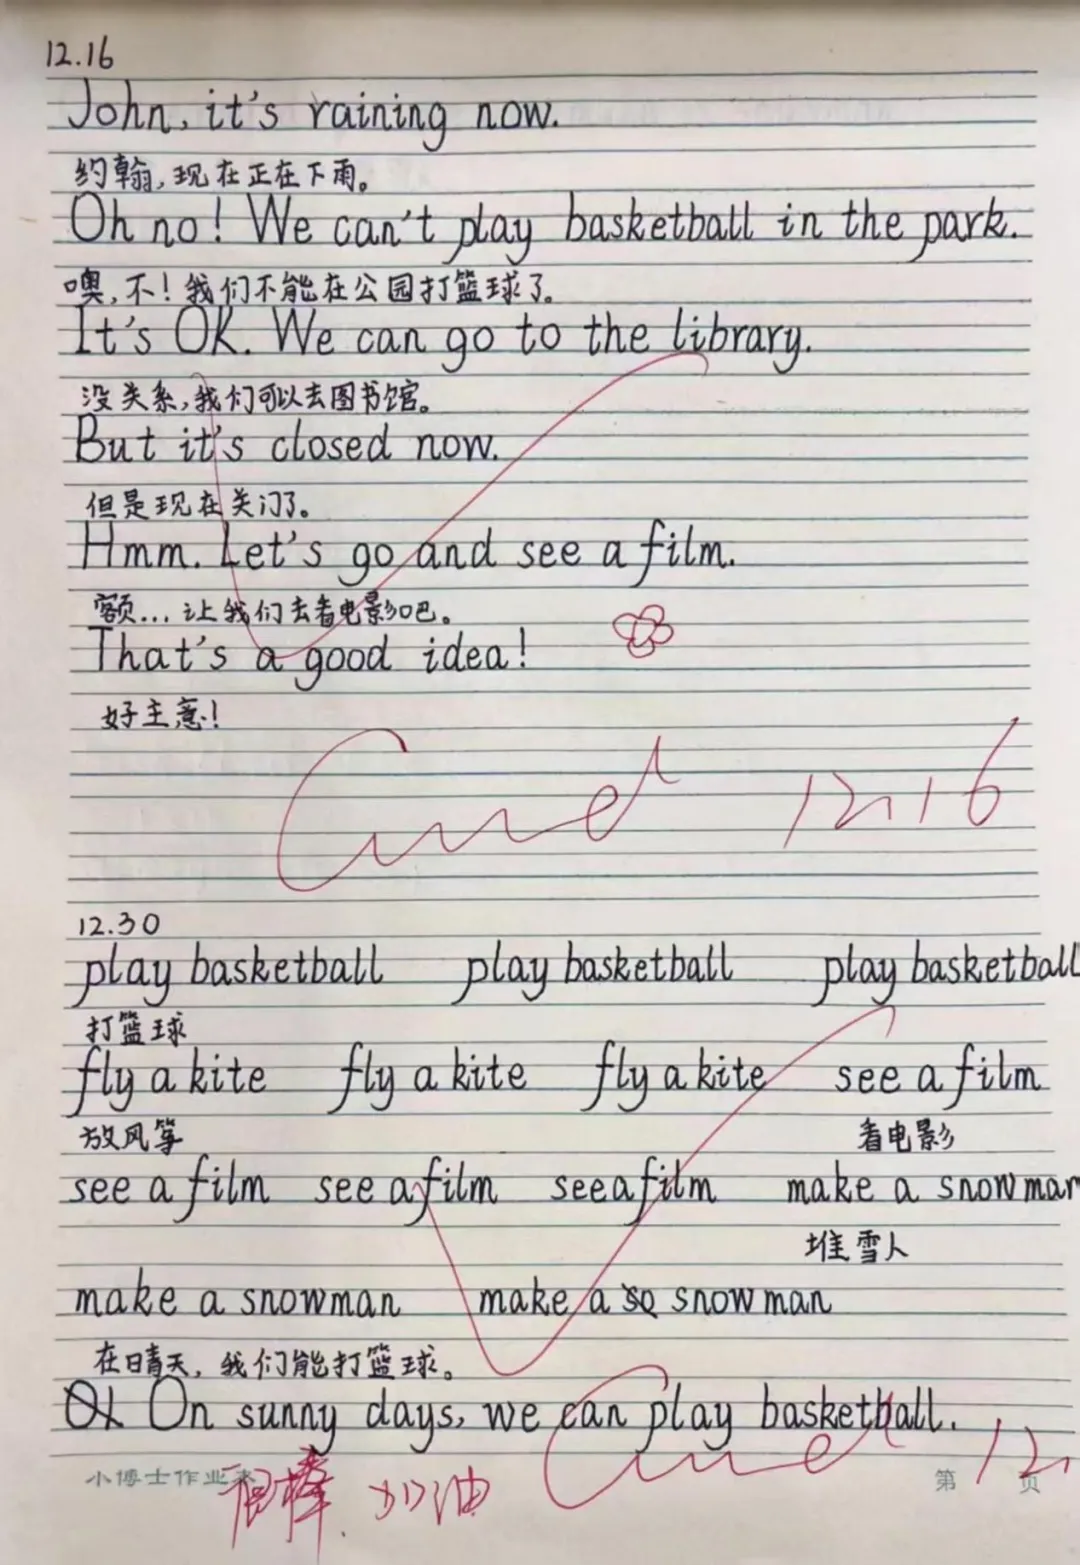 12.16
John, it's raining now.
约翰,现在正在下雨。
Oh no! We can't play basketball in the park.
噢,不!我们不能在公园打篮球了。
It's OK. We can go to the library.
没关系,我们可以去图书馆。
But it's closed now.
但是现在关门了。
Hmm. Let's go and see a film.
额...让我们去看电影吧。
That's a good idea!
好主意!
12.16
12.30
play basketball play basketball play basketball
打篮球
fly a kite fly a kite fly a kite see a film
放风筝 看电影
see a film see a film see a film make a snowman
堆雪人
make a snowman make a snowman
在晴天,我们能打篮球。
On sunny days, we can play basketball.
小博士作业本 第 页
很棒. 加油 12.